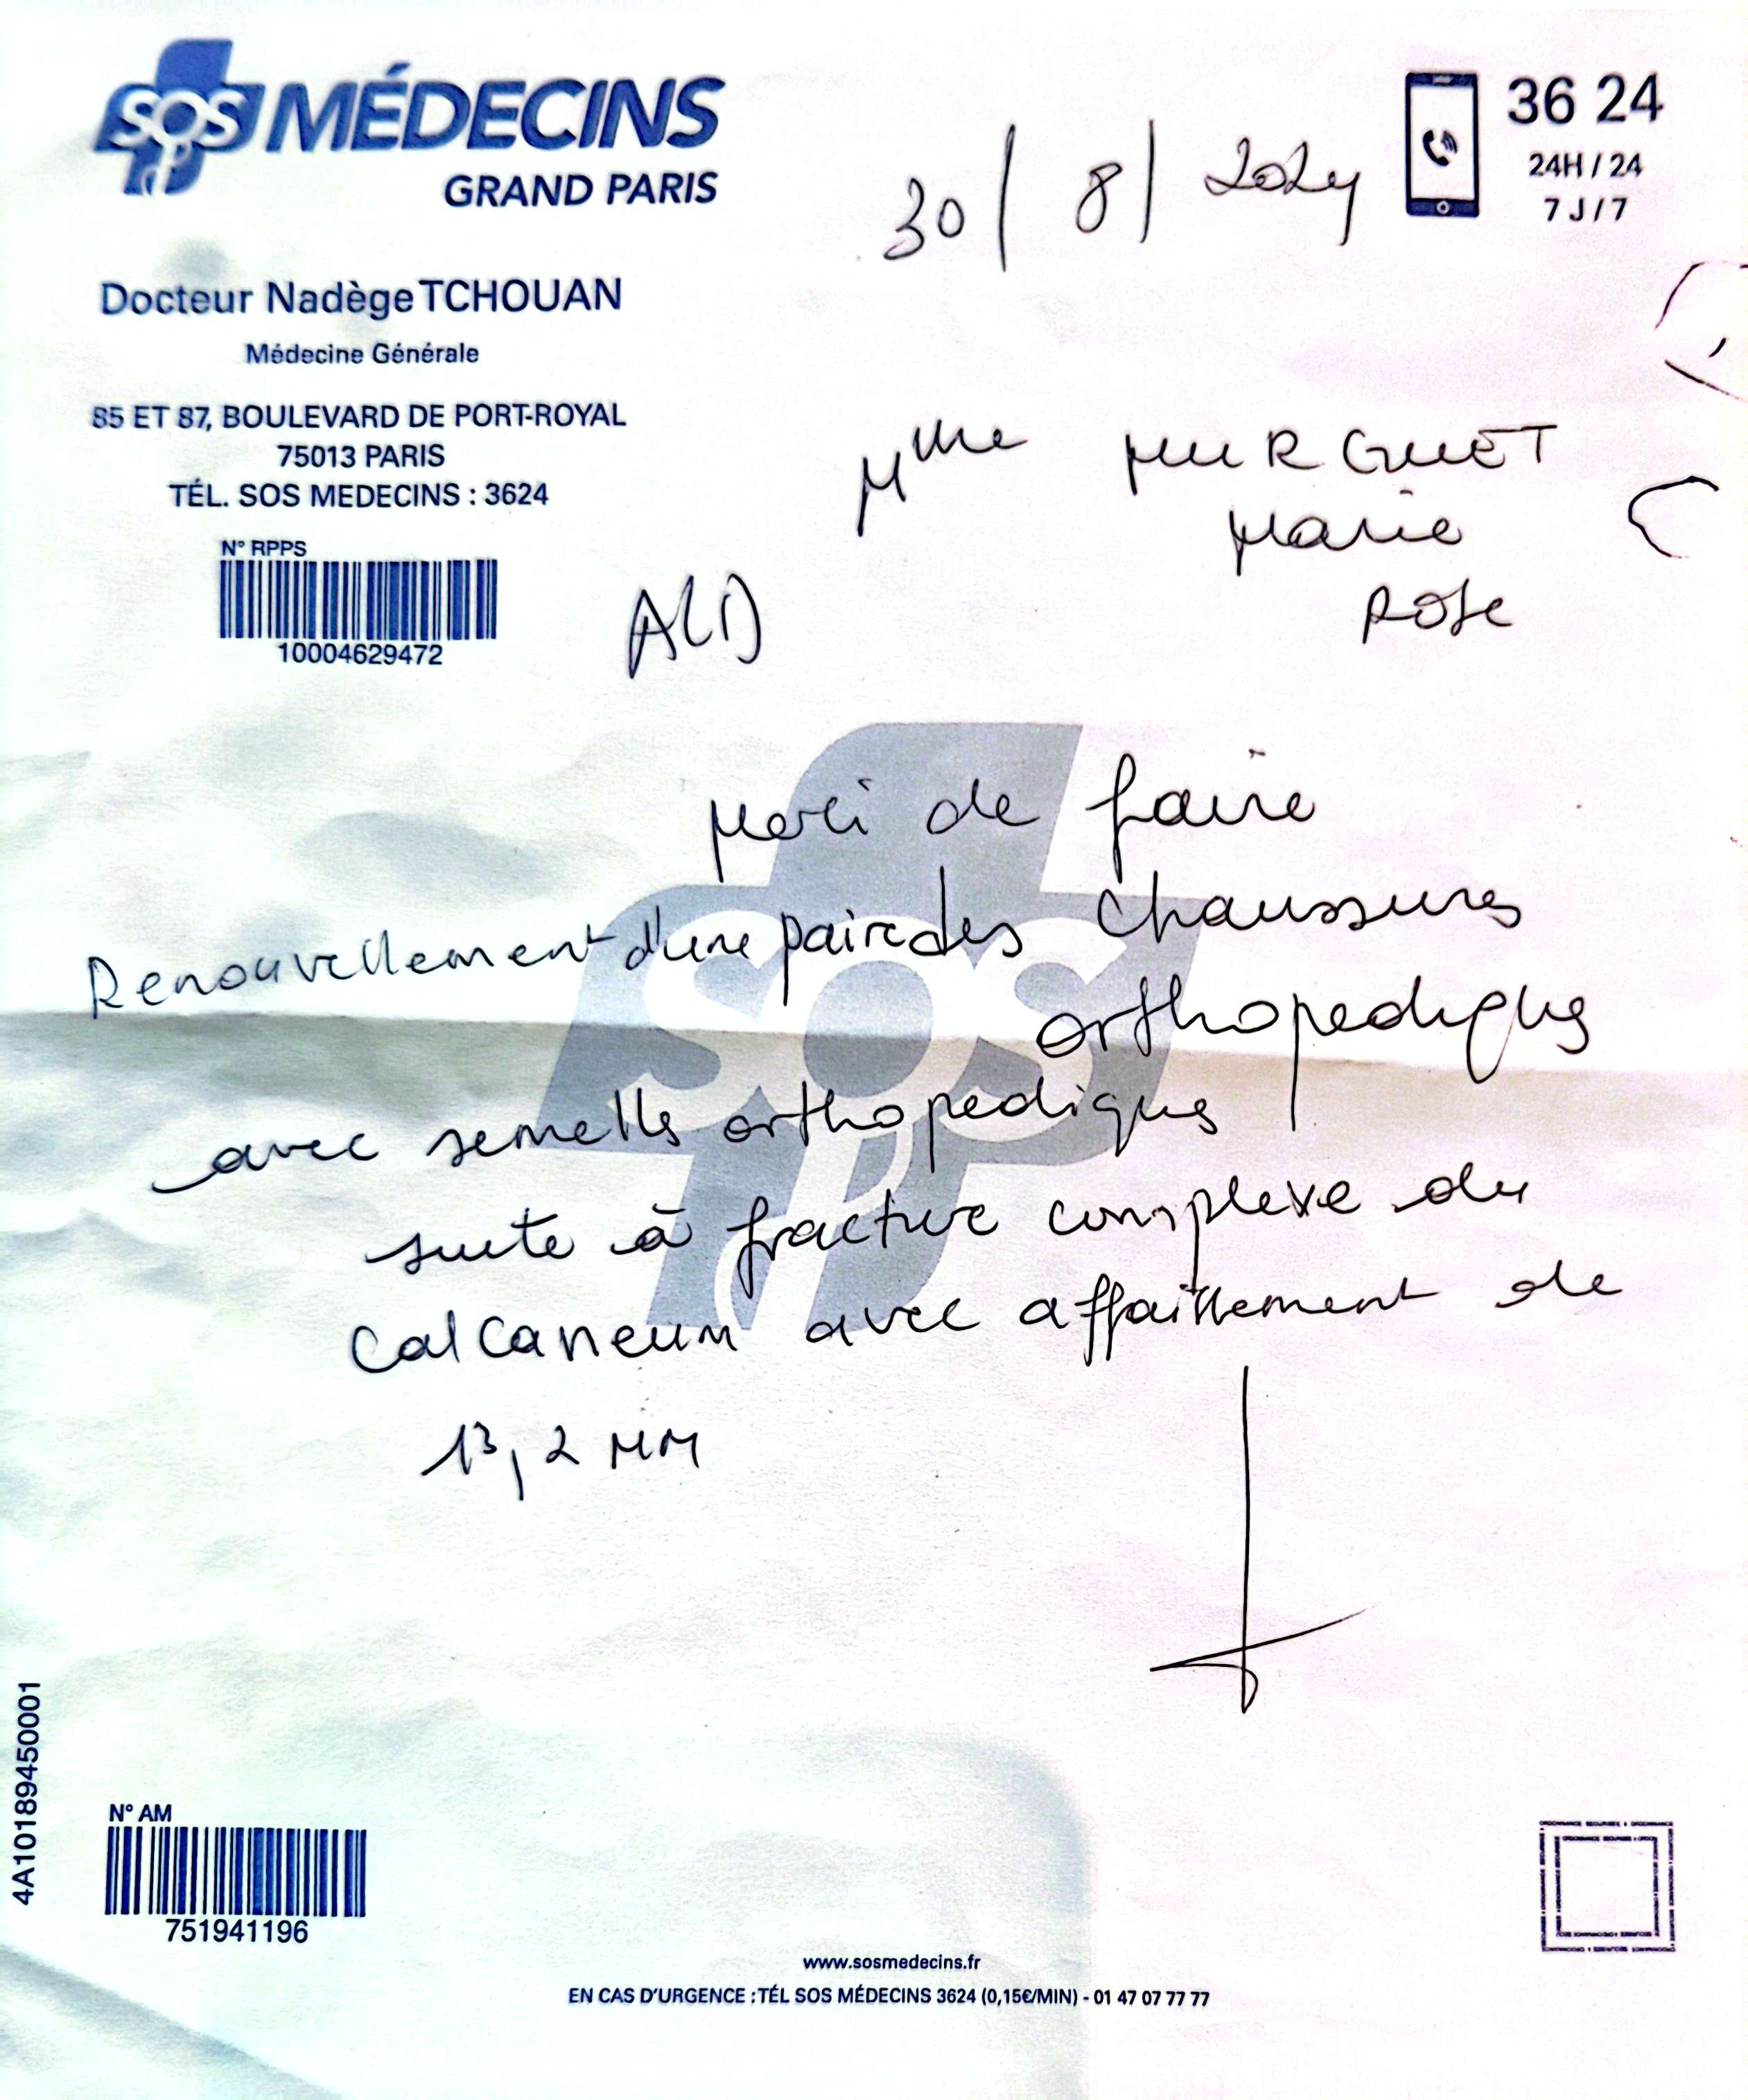 SOS MÉDECINS
GRAND PARIS
36 24
24H / 24
7 J / 7
30/8/2024
Docteur Nadège TCHOUAN
Médecine Générale
85 ET 87, BOULEVARD DE PORT-ROYAL
75013 PARIS
TÉL. SOS MEDECINS : 3624
N° RPPS
10004629472
Mme MURGUET
Marie
Rose
ALD
Merci de faire
Renouvellement d'une paire des chaussures
orthopediques
avec semelles orthopediques
suite à fracture complexe du
Calcaneum avec affaissement de
13,2 MM
SOS
4A10189450001
N° AM
751941196
www.sosmedecins.fr
EN CAS D'URGENCE : TÉL SOS MÉDECINS 3624 (0,15€/MIN) - 01 47 07 77 77